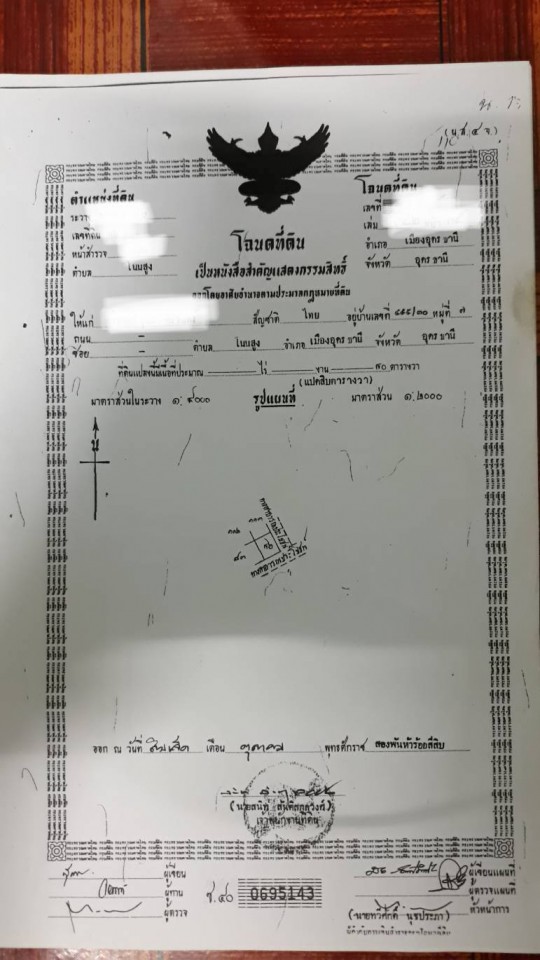 (น.ส.๔ จ.)
ตำแหน่งที่ดิน
ระวาง
เลขที่ดิน
หน้าสำรวจ
ตำบล โนนสูง
โฉนดที่ดิน
เลขที่
เล่ม
อำเภอ เมืองอุดรธานี
จังหวัด อุดรธานี
โฉนดที่ดิน
เป็นหนังสือสำคัญแสดงกรรมสิทธิ์
ออกโดยอาศัยอำนาจตามประมวลกฎหมายที่ดิน
ให้แก่ สัญชาติ ไทย อยู่บ้านเลขที่ หมู่ที่ ๗
ถนน -
ซอย - ตำบล โนนสูง อำเภอ เมืองอุดรธานี จังหวัด อุดรธานี
ที่ดินแปลงนี้มีเนื้อที่ประมาณ ไร่ งาน ๘๐ ตารางวา
(แปดสิบตารางวา)
มาตราส่วนในระวาง ๑: ๔๐๐๐ รูปแผนที่ มาตราส่วน ๑:๒๐๐๐
น
ทางสาธารณประโยชน์
ทางสาธารณประโยชน์
ออก ณ วันที่ สิบเจ็ด เดือน ตุลาคม พุทธศักราช สองพันห้าร้อยสี่สิบ
เจ้าพนักงานที่ดิน
ผู้เขียน
ผู้ทาน
ผู้ตรวจ
ช.๔๐ 0695143
ผู้เขียนแผนที่
ผู้ตรวจแผนที่
หัวหน้าการ
(นายทวีศักดิ์ นุชประภา)